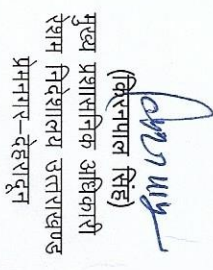 (किरनपाल सिंह)
मुख्य प्रशासनिक अधिकारी
रेशम निदेशालय उत्तराखण्ड
प्रेमनगर–देहरादून